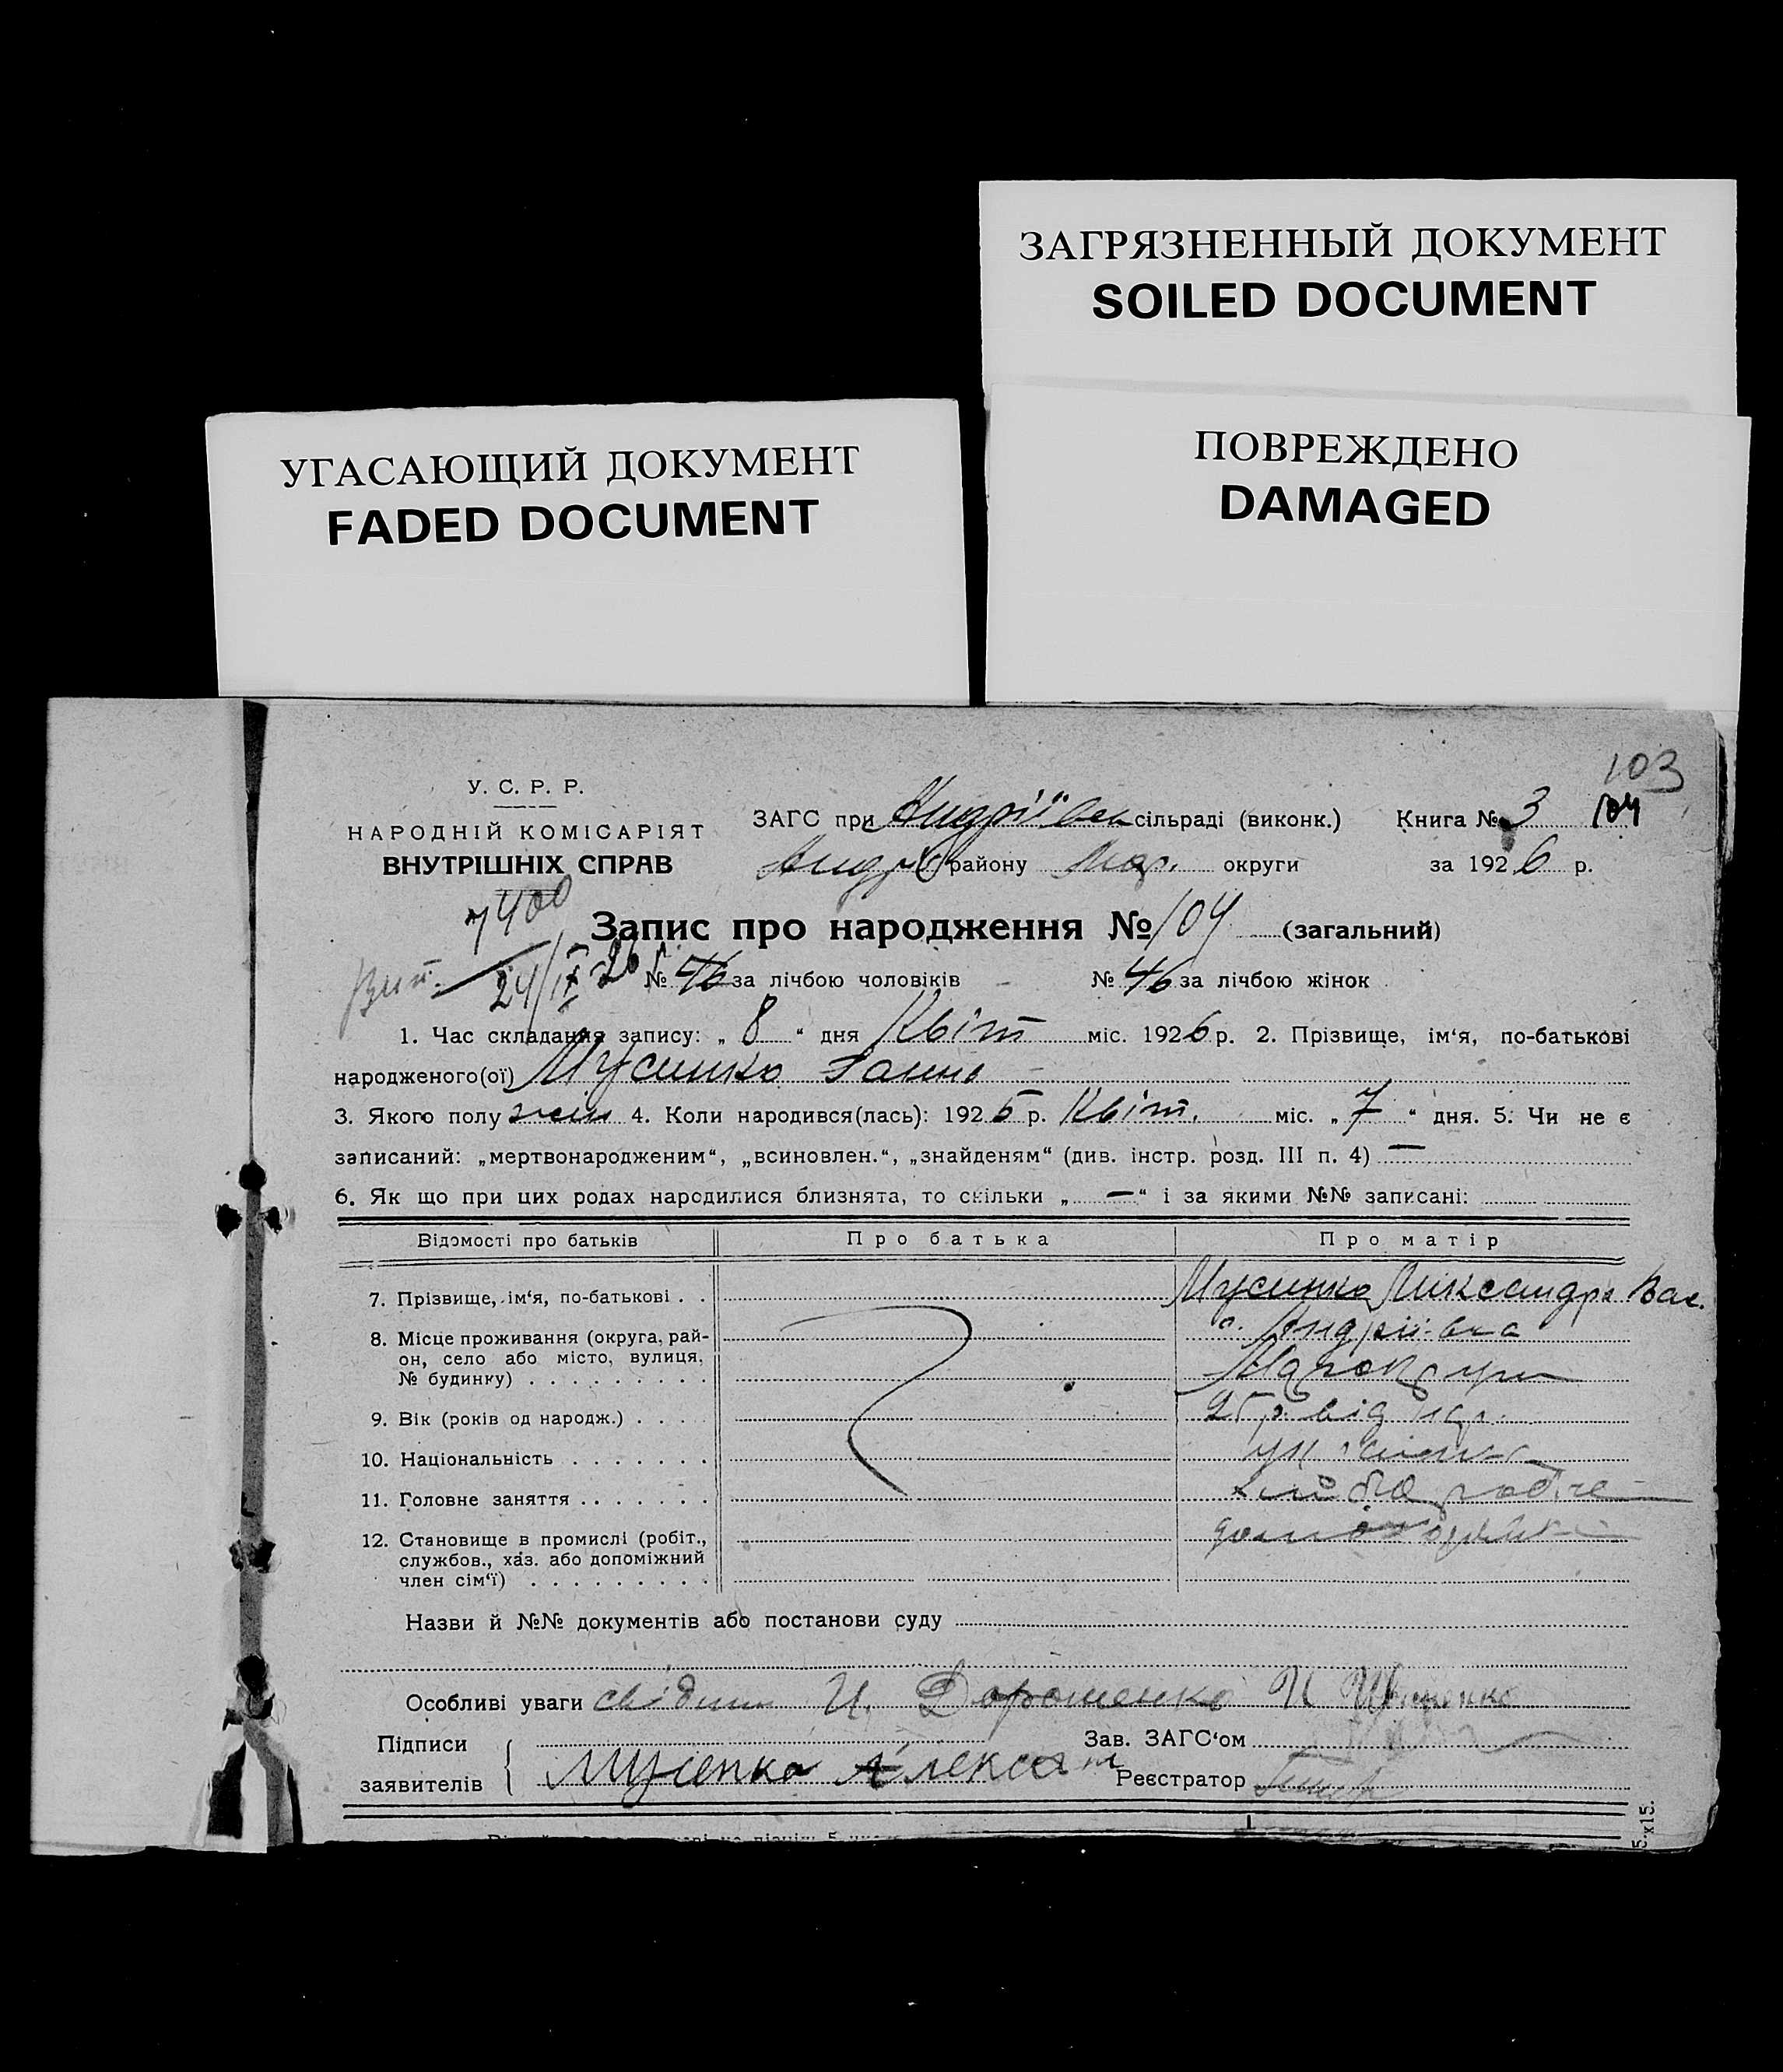 ЗАГРЯЗНЕННЫЙ ДОКУМЕНТ
SOILED DOCUMENT
УГАСАЮЩИЙ ДОКУМЕНТ
FADED DOCUMENT
ПОВРЕЖДЕНО
DAMAGED
103
У. С. Р. Р.
НАРОДНІЙ КОМІСАРІЯТ
ВНУТРІШНІХ СПРАВ
ЗАГС при Андріївск сільраді (виконк.) Книга № 3 104
Андр району Мар. округи за 1926 р.
7400
Запис про народження № 104 (загальний)
24/IX 26 № 46 за лічбою чоловіків № 46 за лічбою жінок
1. Час складання запису: „ 8 “ дня Квіт міс. 1926 р. 2. Прізвище, ім‘я, по-батькові
народженого(ої) Мусинко Ганна
3. Якого полу жін 4. Коли народився(лась): 1925 р. Квіт. міс. „ 7 “ дня. 5. Чи не є
записаний: „мертвонародженим“, „всиновлен.“, „знайденям“ (див. інстр. розд. III п. 4) —
6. Як що при цих родах народилися близнята, то скільки „ — “ і за якими №№ записані:
Відомості про батьків Про батька Про матір
7. Прізвище, ім‘я, по-батькові . . Мусинко Александра Вас.
8. Місце проживання (округа, рай-
он, село або місто, вулиця,
№ будинку) . . . . . . . . .
с. Андріївка
9. Вік (років од народж.) . . . . 25 р. від нар.
10. Національність . . . . . . .
11. Головне заняття . . . . . . . хлібо робче
12. Становище в промислі (робіт.,
службов., хаз. або допоміжний
член сім‘ї) . . . . . . . . .
Назви й №№ документів або постанови суду
Особливі уваги свідки И. Дорошенко И
Підписи
заявителів
Мусенко Алексан
Зав. ЗАГС‘ом
Реєстратор
5.х15.